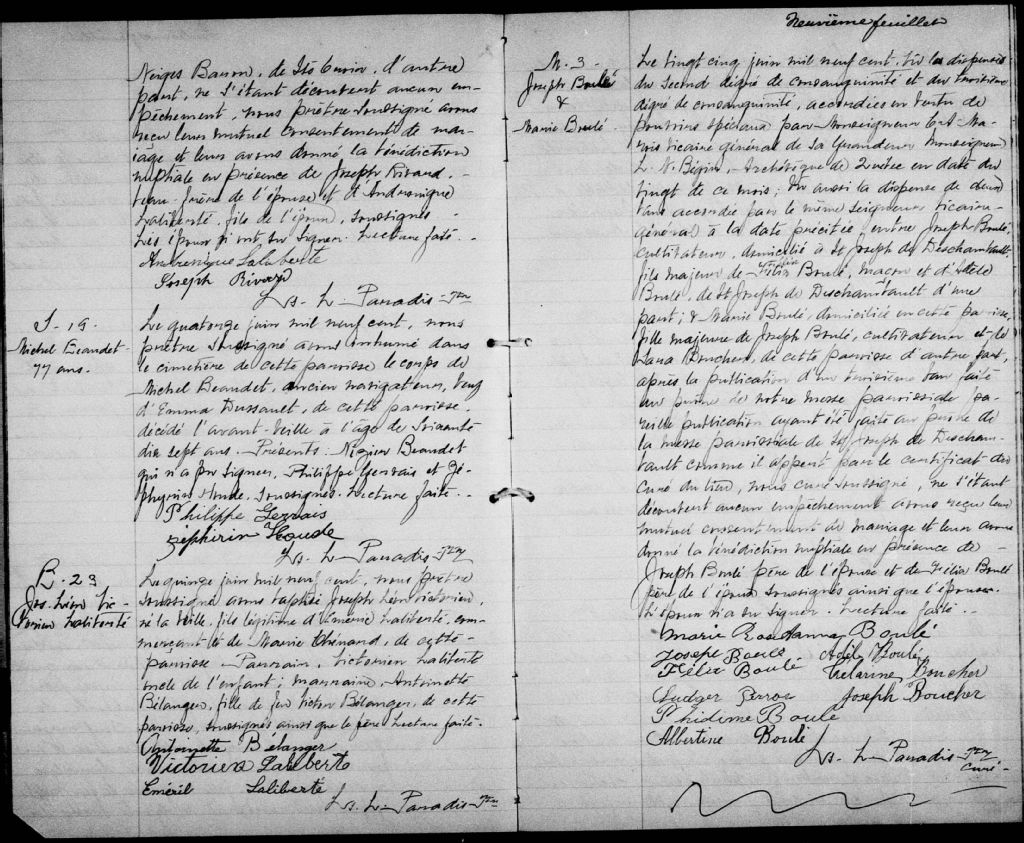 Neuvième feuillet
Neiges Baron, de Ste Cuvin, d'autre
part, ne s'étant découvert aucun em-
pêchement, nous prêtre soussigné avons
reçu leur mutuel consentement de ma-
riage et leur avons donné la bénédiction
nuptiale en présence de Joseph Rivard,
frère de l'épouse et d'Andronique
Laliberté, fils de l'époux, soussignés.
Les époux n'ont su signer. Lecture faite.
Andronique Laliberté
Joseph Rivard
Ls. L. Paradis Ptre
S. 19.
Michel Beaudet
77 ans.
Le quatorze juin mil neuf cent, nous
prêtre soussigné avons inhumé dans
le cimetière de cette paroisse le corps de
Michel Beaudet, ancien navigateur, veuf
d'Emma Dussault, de cette paroisse,
décédé l'avant-veille à l'âge de soixante
dix sept ans. Présents Nizier Beaudet
qui n'a pu signer, Philippe Gervais et Zé-
phirin Houde, soussignés. Lecture faite.
Philippe Gervais
Zéphirin Houde
Ls. L. Paradis Ptre
B. 23
Jos. Léon Vic-
torien Laliberté
Le quinze juin mil neuf cent, nous prêtre
soussigné avons baptisé Joseph Léon Victorien,
né la veille, fils légitime d'Eméril Laliberté, com-
merçant et de Marie Chénard, de cette
paroisse. Parrain, Victorien Laliberté
oncle de l'enfant; marraine, Antoinette
Bélanger, fille de feu Victor Bélanger, de cette
paroisse, soussignés ainsi que le père. Lecture faite.
Antoinette Bélanger
Victorien Laliberté
Eméril Laliberté
Ls. L. Paradis Ptre
M. 3
Joseph Boulé
&
Marie Boulé
Le vingt cinq juin mil neuf cent, vu la dispense
du second dégré de consanguinité et du troisième
dégré de consanguinité, accordées en vertu de
pouvoirs spéciaux par Monseigneur Cyr. Ma-
rois vicaire général de Sa Grandeur Monseigneur
L. N. Bégin, Archevêque de Québec en date du
vingt de ce mois; Vu aussi la dispense de deux
bans accordée par le même seigneur vicaire-
général à la date précitée, entre Joseph Boulé,
cultivateur, domicilié à St Joseph de Deschambault,
fils majeur de Félix Boulé, maçon et d'Adèle
Boulé, de St Joseph de Deschambault d'une
part; & Marie Boulé, domiciliée en cette paroisse,
fille majeure de Joseph Boulé, cultivateur et de
Zana Boucher, de cette paroisse d'autre part,
après la publication d'un troisième ban faite
au prône de notre messe paroissiale pa-
reille publication ayant été faite au prône de
la messe paroissiale de St Joseph de Descham-
bault comme il appert par le certificat du
curé du lieu, nous curé soussigné, ne s'étant
découvert aucun empêchement avons reçu leur
mutuel consentement de mariage et leur avons
donné la bénédiction nuptiale en présence de
Joseph Boulé père de l'épouse et de Félix Boulé
père de l'époux soussignés ainsi que l'épouse.
L'époux n'a su signer. Lecture faite.
Marie Rosanna Boulé
Joseph Boulé Adèle Boulé
Félix Boulé Delarine Boucher
Ludger Perron Joseph Boucher
Phidime Boulé
Albertine Boulé
Ls. L. Paradis Ptre
Curé